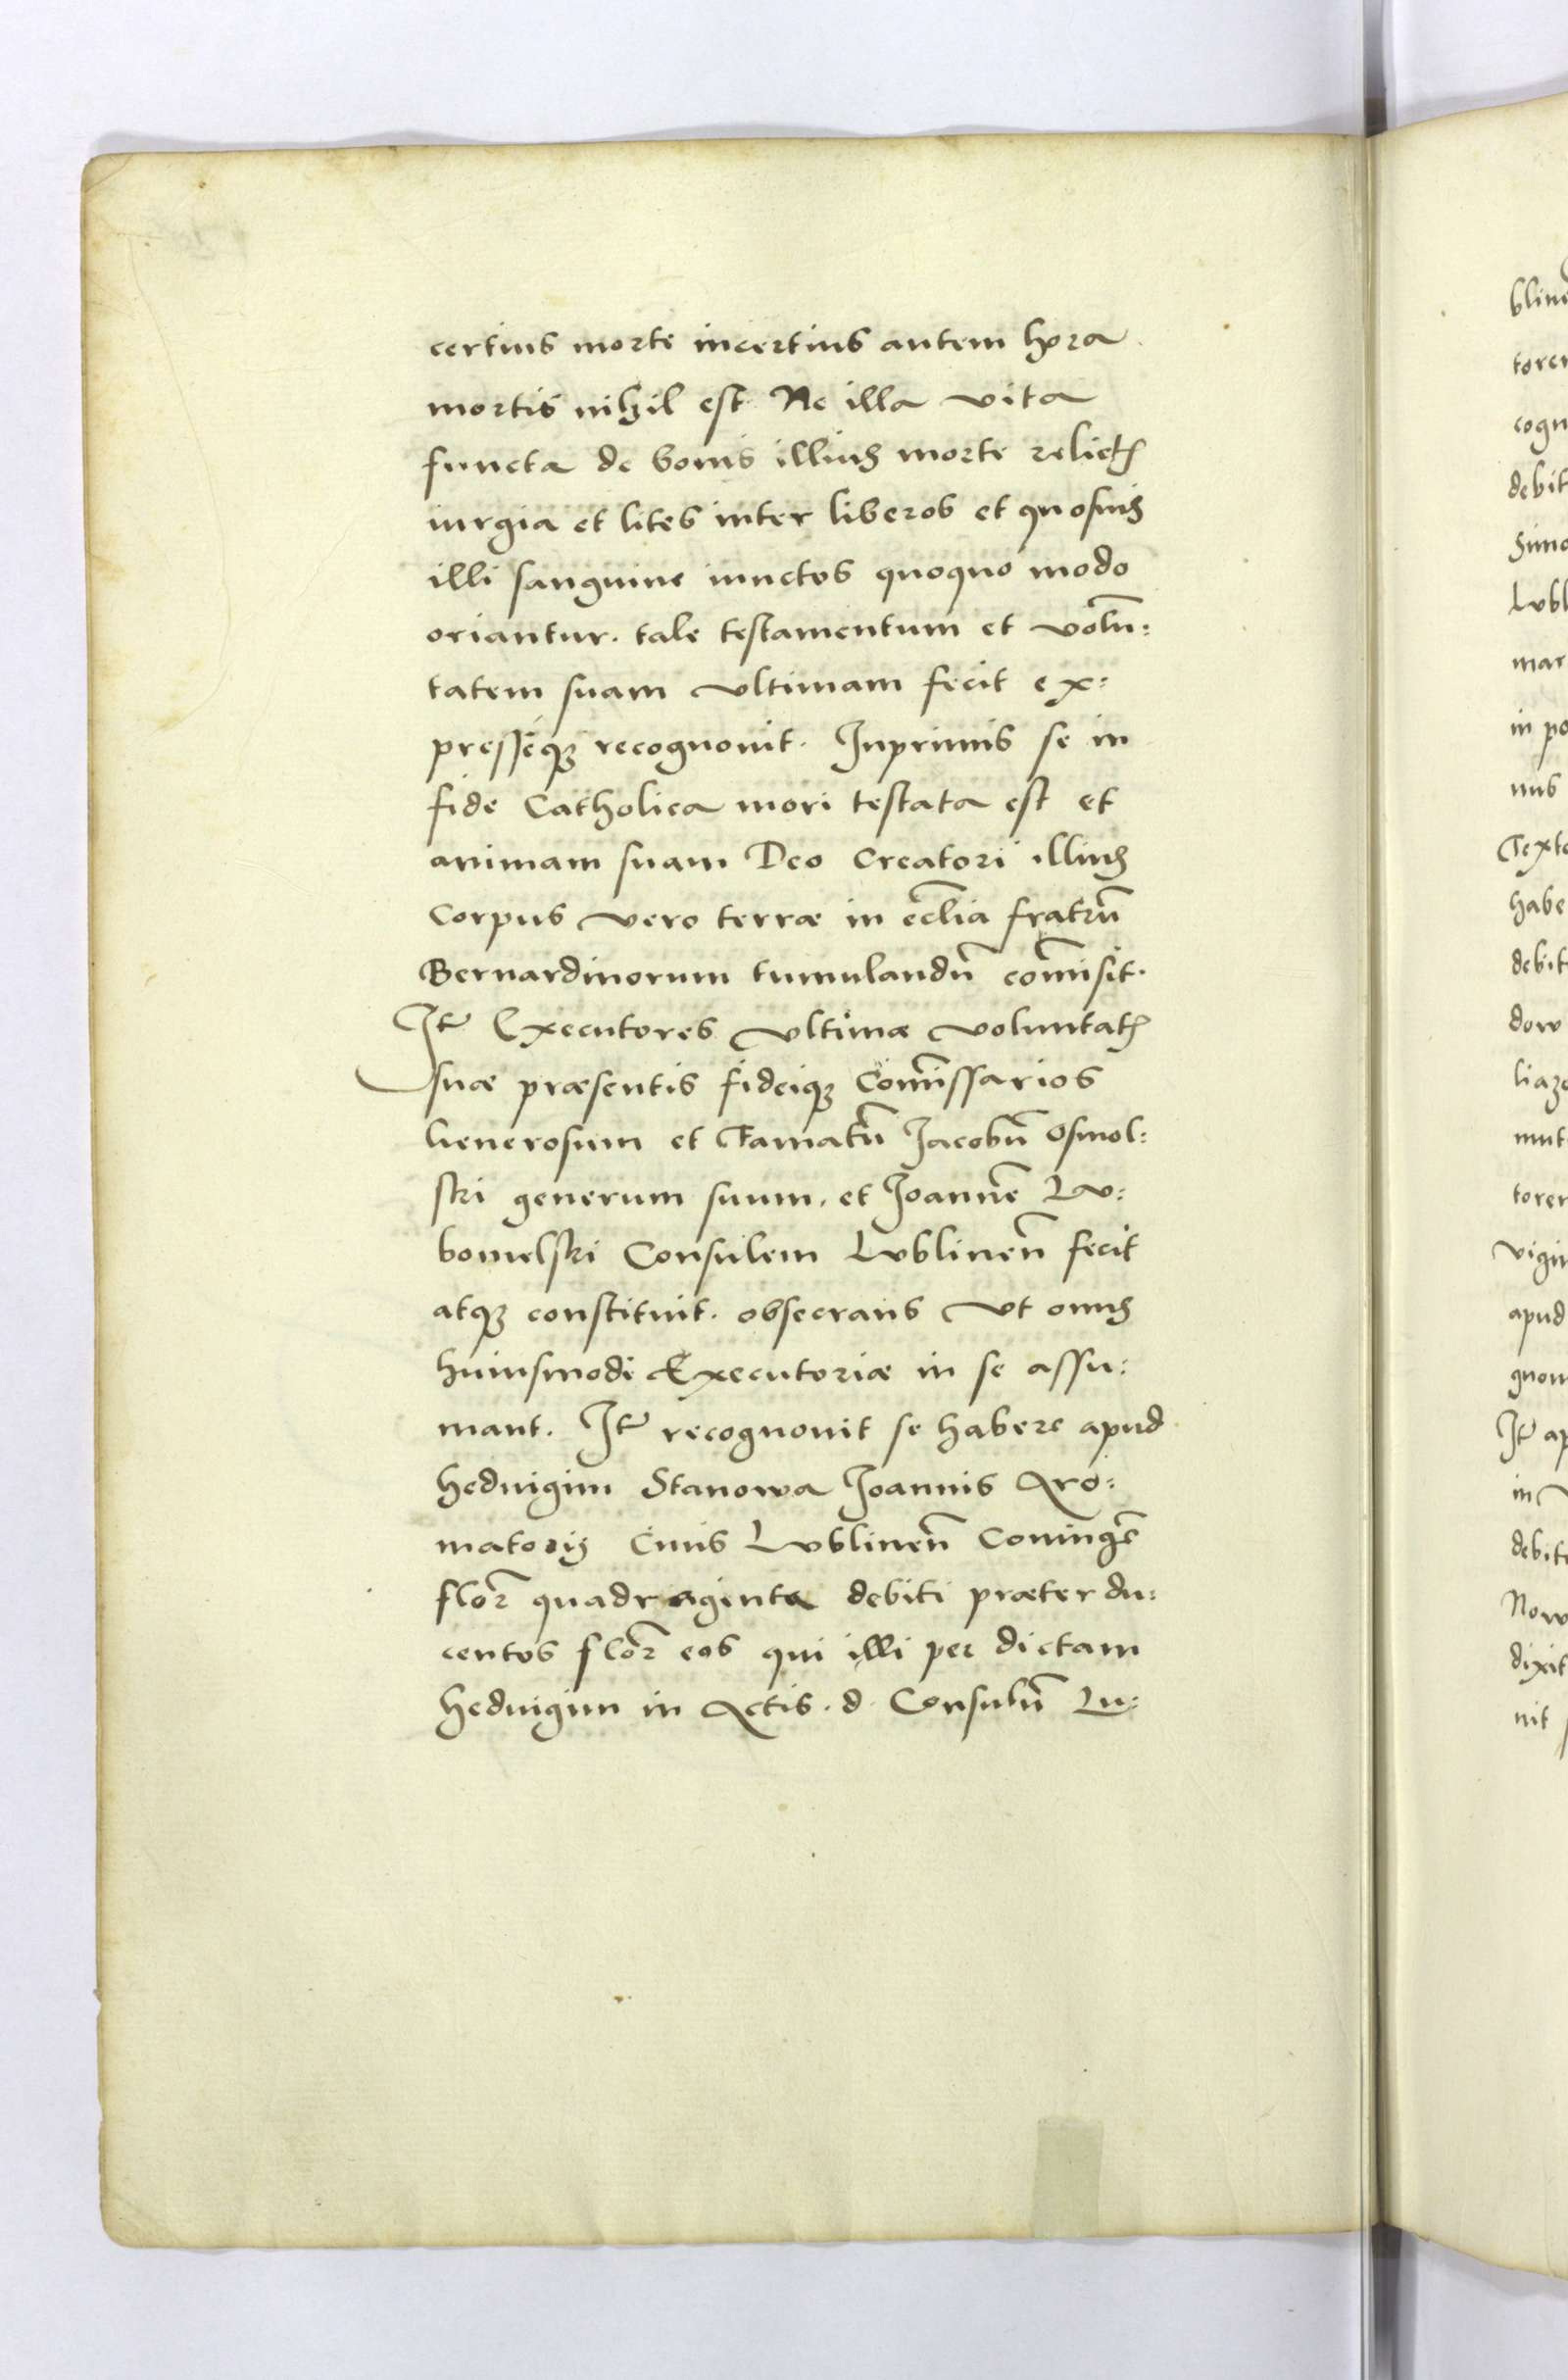 certius morte incertius autem hora
mortis nihil est. Ne illa vita
functa de bonis illius morte relictis
iurgia et lites inter liberos et quosuis
illi sanguine iunctos quoquo modo
oriantur. tale testamentum et volū:
tatem suam vltimam fecit ex:
presséqꝫ recognouit. Inprimis se in
fide Catholica mori testata est et
animam suam Deo Creatori illius
Corpus vero terræ in ecc̄lia fratrū
Bernardinorum tumulandū com̄isit.
Itē Executores vltimæ voluntatis
suæ præsentis fideiqꝫ Com̄issarios
Generosum et Famatū Jacobū Osmol:
ski generum suum, et Joannē Lv:
bomelski Consulem Lvblinen̄ fecit
atqꝫ constituit. obsecrans vt onus
huiusmodi Executoriæ in se assu:
mant. Itē recognouit se habere apud
heduigim Stanowa Joannis Aro:
matorij Ciuis Lvblinen̄ Coniugē
flor̄ quadraginta debiti præter du:
centos flor̄ eos qui illi per dictam
heduigim in Actis .d. Consulū Lu:
blin
torem
cogn
debit
Lvbl
mar
in po
nus
Texto
habe
debit
dow
mut
torem
vigin
apud
gnou
Itē ap
in
debit
Now
dixit
nit